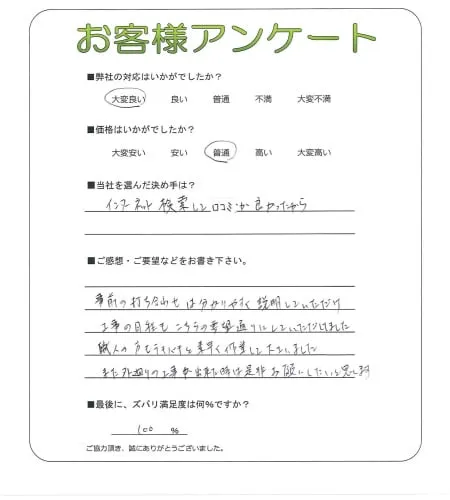 お客様アンケート
■弊社の対応はいかがでしたか？
大変良い 良い 普通 不満 大変不満
■価格はいかがでしたか？
大変安い 安い 普通 高い 大変高い
■当社を選んだ決め手は？
インターネット 検索して口コミが良かったから
■ご感想・ご要望などをお書き下さい。
事前の打ち合わせは分かりやすく説明していただけ
工事の日程もこちらの要望通りにしていただけました
職人の方もテキパキと素早く作業して下さいました
また外廻りの工事が出来た時は是非お願いしたいと思います
■最後に、ズバリ満足度は何％ですか？
100 %
ご協力頂き、誠にありがとうございました。